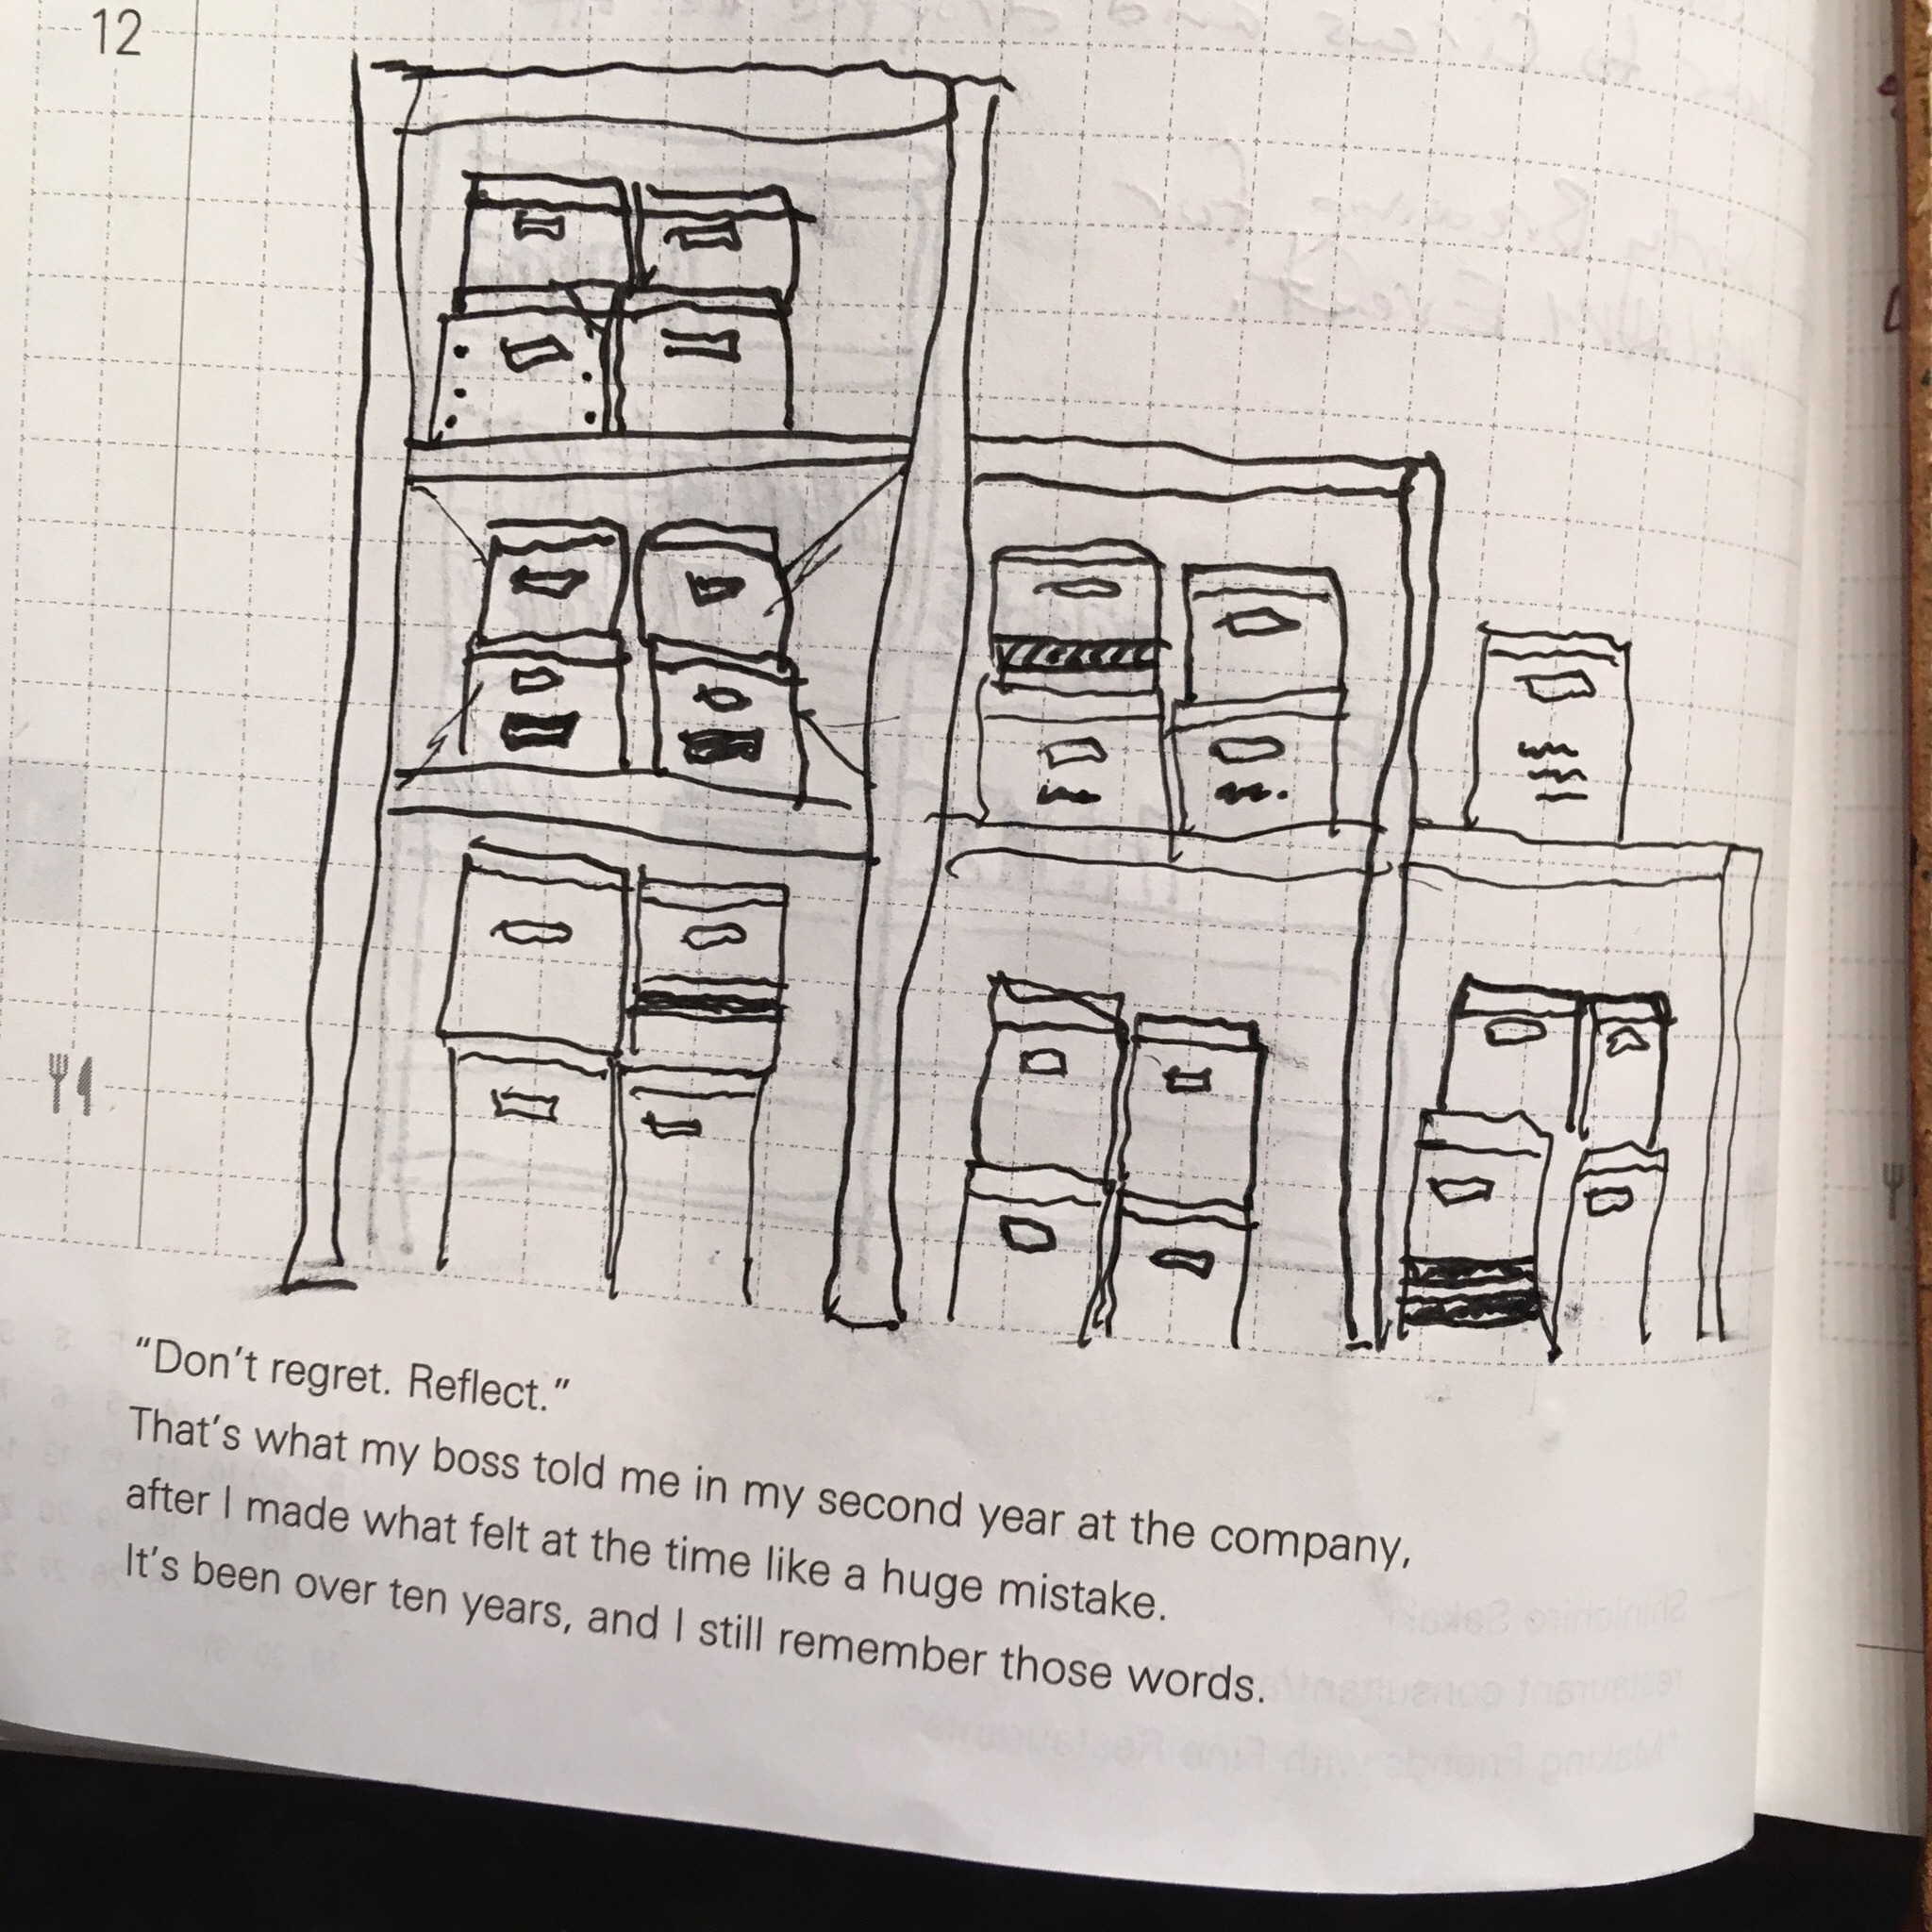 12
“Don’t regret. Reflect.”
That’s what my boss told me in my second year at the company,
after I made what felt at the time like a huge mistake.
It’s been over ten years, and I still remember those words.